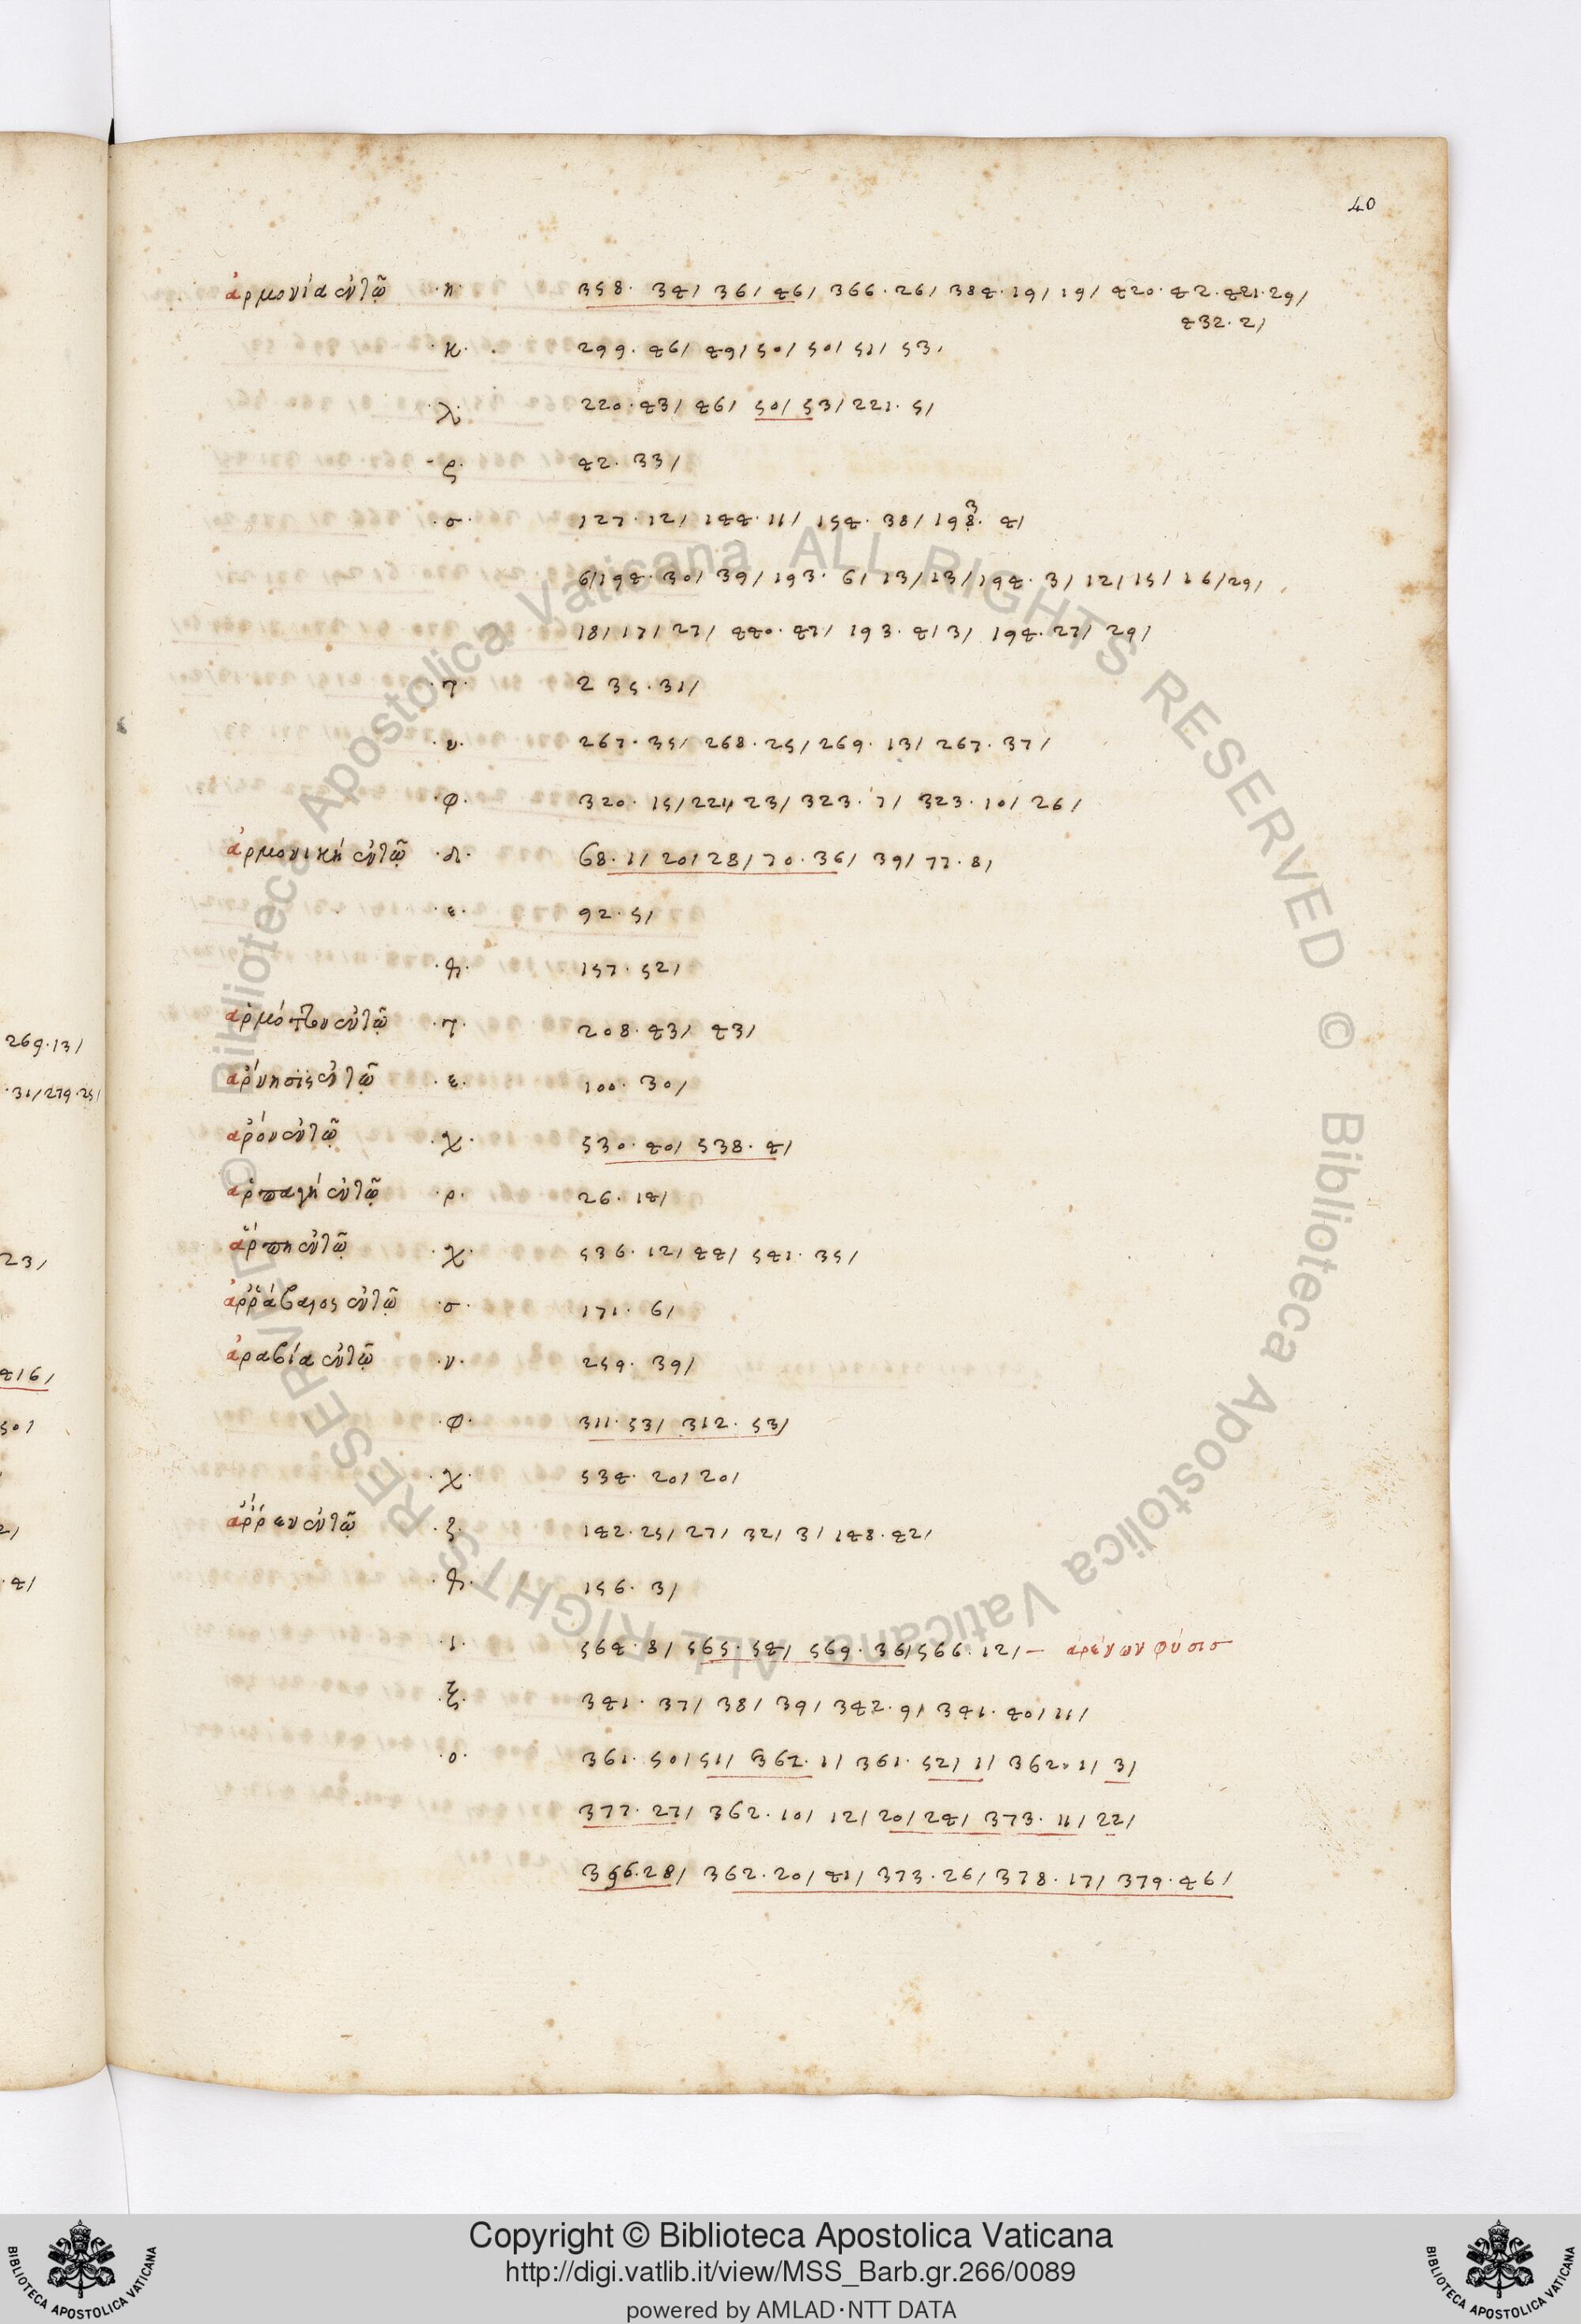 40
ἁρμονία ἐν τῷ ·η· 358· 34/ 36/ 46/ 366·26/ 384·19/ 19/ 420·42·421·29/
432·2/
·κ· 299·46/ 49/ 50/ 50/ 51/ 53/
·λ· 220·43/ 46/ 50/ 53/ 221·5/
·ς· 42·33/
·σ· 127·12/ 144·11/ 154·38/ 198·4/
6/194·30/ 39/ 193·6/ 13/ 13/ 194·3/ 12/ 15/ 16/ 29/
18/ 17/ 27/ 440·47/ 193·4/ 3/ 194·27/ 29/
·τ· 235·31/
·υ· 267·35/ 268·25/ 269·13/ 267·37/
·φ· 320·15/ 221/ 23/ 323·7/ 323·10/ 26/
ἁρμονικὴ ἐν τῷ ·δ· 68·1/ 20/ 28/ 70·36/ 39/ 77·8/
·ε· 92·5/
157·52/
ἁρμόττον ἐν τῷ ·τ· 208·43/ 43/
ἄρνησις ἐν τῷ ·ε· 100·30/
ἄρον ἐν τῷ ·χ· 530·40/ 538·4/
ἁρπαγὴ ἐν τῷ ·ρ· 26·14/
ἅρπη ἐν τῷ ·χ· 536·12/ 44/ 541·35/
ἀῤῥάβαιος ἐν τῷ ·σ· 171·6/
ἀραβία ἐν τῷ ·ν· 259·39/
·φ· 311·53/ 312·53/
·χ· 534·20/ 20/
ἄῤῥεν ἐν τῷ ·ζ· 142·25/ 27/ 32/ 3/ 148·42/
156·3/
·ι· 564·8/ 565·54/ 569·36/ 566·12/ – ἀρένων φύσισ
·ξ· 341·37/ 38/ 39/ 342·9/ 341·40/ 11/
·ο· 361·50/ 51/ 362·1/ 361·52/ 1/ 362·1/ 3/
377·27/ 362·10/ 12/ 20/ 24/ 373·11/ 22/
396·28/ 362·20/ 41/ 373·26/ 378·17/ 379·46/
269·13/
·31/279·25/
23/
416/
50/
2/
·4/
© Biblioteca Apostolica Vaticana ALL RIGHTS RESERVED © Biblioteca Apostolica Vaticana ALL RIGHTS RESERVED
Copyright © Biblioteca Apostolica Vaticana
http://digi.vatlib.it/view/MSS_Barb.gr.266/0089
powered by AMLAD·NTT DATA
BIBLIOTECA APOSTOLICA VATICANA
BIBLIOTECA APOSTOLICA VATICANA